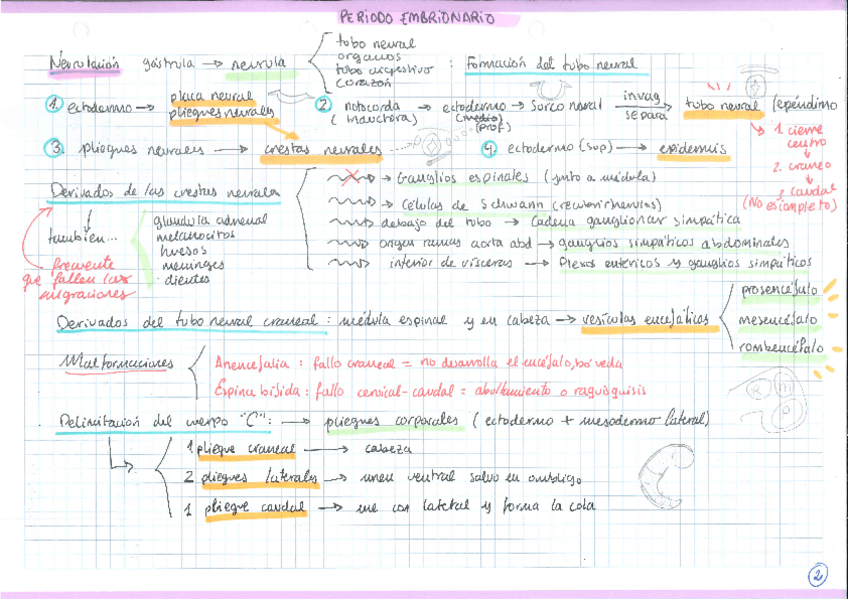 PERIODO EMBRIONARIO
Neurulación gástrula → neurula
tubo neural
organos
tubo digestivo
corazón
: Formación del tubo neural
1. ectodermo → placa neural
pliegues neurales
2. notocorda → ectodermo → surco neural invag → tubo neural (ependimo
(inductora) (medio) separa
(prof)
1. cierre centro
2. craneo
3. caudal
(No es completo)
3. pliegues neurales → crestas neurales
4. ectodermo (sup) → epidermis
Derivados de las crestas neurales
→ Ganglios espinales (junto a médula)
→ Células de Schwann (recubrir nervios)
debajo del tubo → Cadena ganglionar simpática
origen ramas aorta abd → ganglios simpáticos abdominales
interior de vísceras → Plexos entéricos y ganglios simpáticos
también...
glandula adrenal
melanocitos
huesos
meninges
dientes
frecuente
que fallen las
migraciones
Derivados del tubo neural craneal: médula espinal y en cabeza → vesículas encefálicas
prosencéfalo
mesencéfalo
rombencéfalo
Malformaciones
Anencefalia: fallo craneal = no desarrolla el encéfalo, bóveda
Espina bífida: fallo cervical-caudal = abultamiento o raquisquisis
R m
P
Delimitación del cuerpo "C": → pliegues corporales (ectodermo + mesodermo lateral)
1 pliegue craneal → cabeza
2 pliegues laterales → unen ventral salvo en ombligo
1 pliegue caudal → une con lateral y forma la cola
2